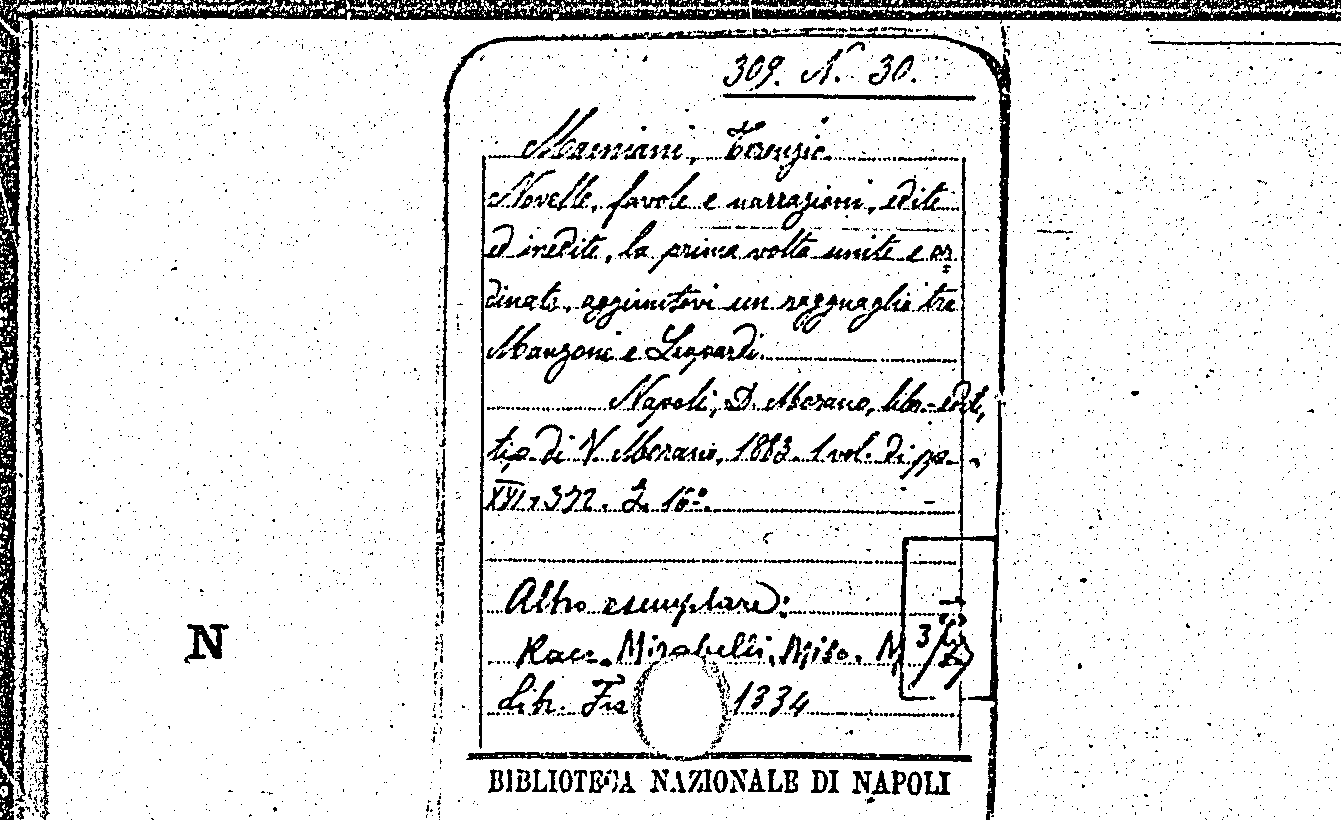 309. N. 30.
Mamiani, Terenzio.
Novelle, favole e narrazioni, edite
ed inedite, la prima volta unite e or=
dinate, aggiuntovi un ragguaglio tra
Manzoni e Leopardi.
Napoli, D. Morano, libr.-edit,
tip. di V. Morano, 1883. 1 vol. di pp.
XVI, 372. In 16º.
Altro esemplare:
Racc. Mirabelli, Misc. N
Sch. 1334
N
BIBLIOTECA NAZIONALE DI NAPOLI